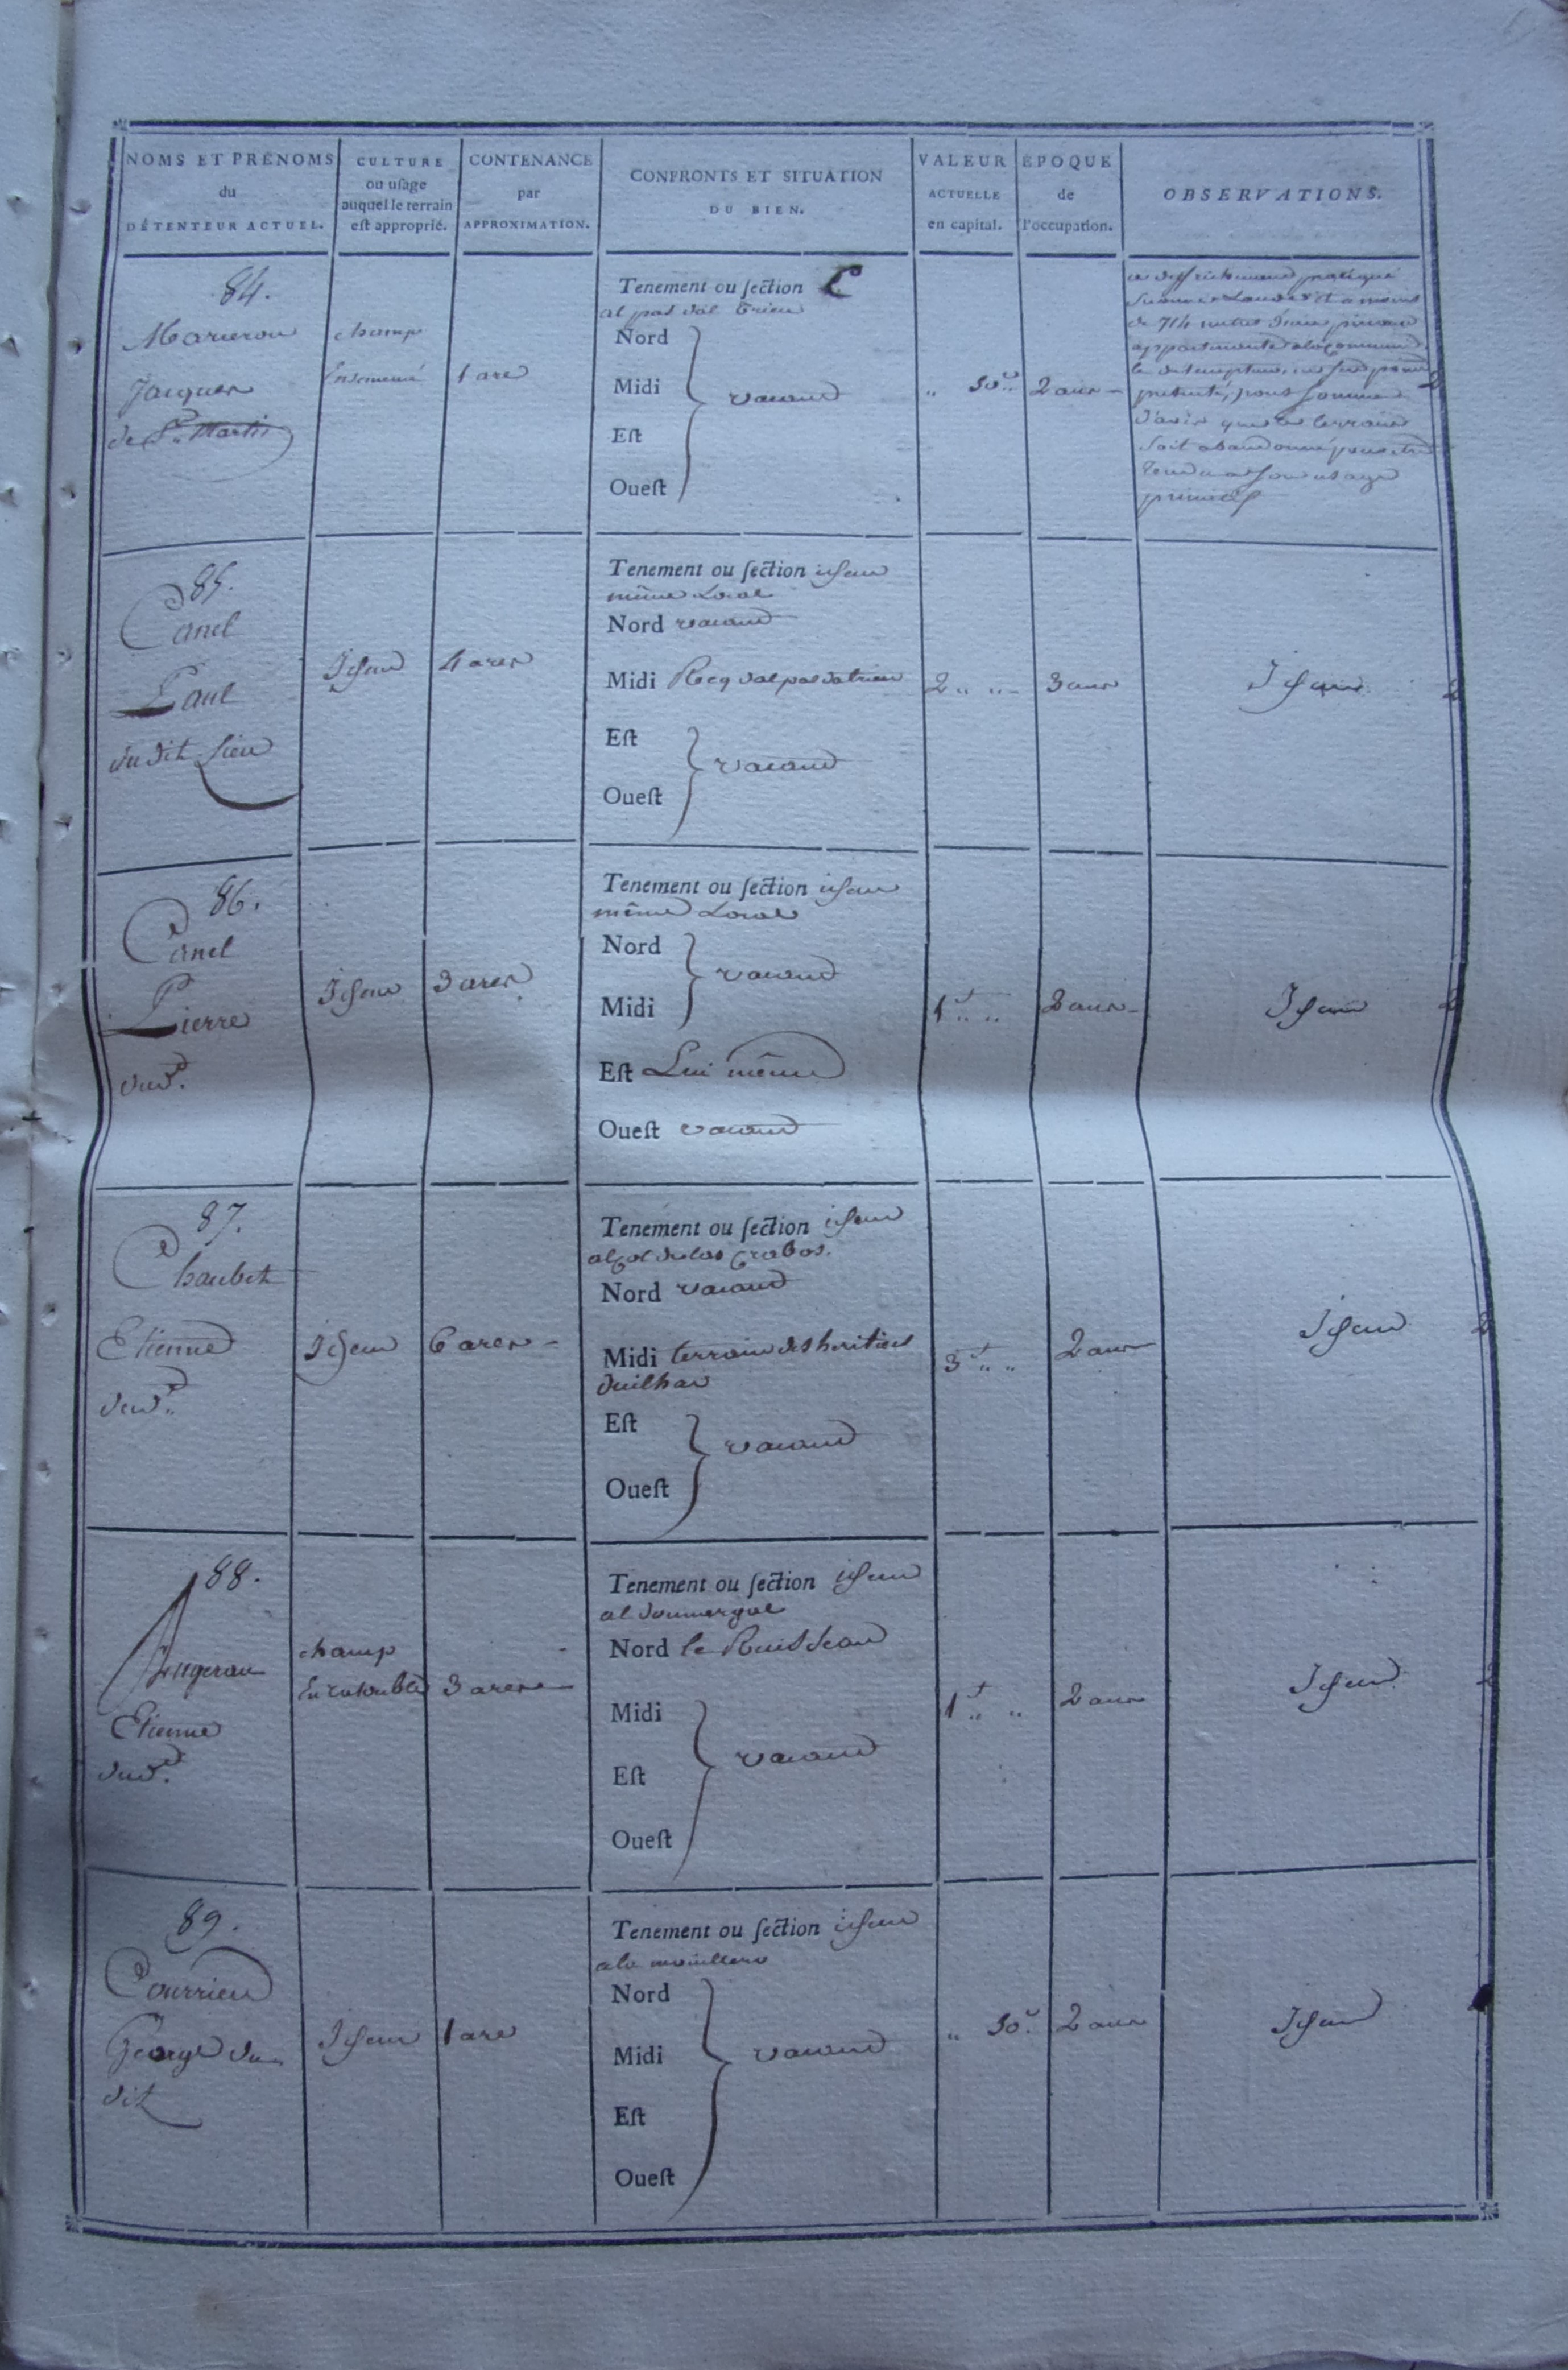 NOMS ET PRÉNOMS
du
DÉTENTEUR ACTUEL.
CULTURE
ou uſage
auquel le terrain
eſt approprié.
CONTENANCE
par
APPROXIMATION.
CONFRONTS ET SITUATION
DU BIEN.
VALEUR
ACTUELLE
en capital.
ÉPOQUE
de
l'occupation.
OBSERVATIONS.
84.
Jacques
de St. Martin
champ
Ensemencé
1 are
Tenement ou ſection C
al pas dal trieu
Nord
Midi
Eſt
Oueſt
vacand
" 50c "
2 ans
ce deffrichement pratiqué
de 714 metres
appartenante a la commune
d'avis que ce terrain
soit abandonné pour etre
rendu a son usage
primitif
85.
Canel
Paul
du dit Lieu
Idem
4 ares
Tenement ou ſection idem
même Local
Nord vacand
Midi Recq dal pas dal trieu
Eſt
Oueſt
vacand
2 " "
3 ans
Idem
86.
Canel
Pierre
dud.
Idem
3 ares
Tenement ou ſection idem
même Local
Nord
Midi
vacand
Eſt Lui même
Oueſt vacand
1 " "
2 ans
Idem
87.
Chaubet
Etienne
dud.
Idem
6 ares
Tenement ou ſection idem
al Col de las Crabos.
Nord vacand
Midi terrain des heritiers
Eſt
Oueſt
vacand
3 " "
2 ans
Idem
88.
Etienne
dud.
champ
3 ares
Tenement ou ſection idem
al
Nord le Ruisseau
Midi
Eſt
Oueſt
vacand
1 " "
2 ans
Idem
89.
Courrieu
George du
dit
Idem
1 are
Tenement ou ſection idem
a la
Nord
Midi
Eſt
Oueſt
vacand
" 50c
2 ans
Idem